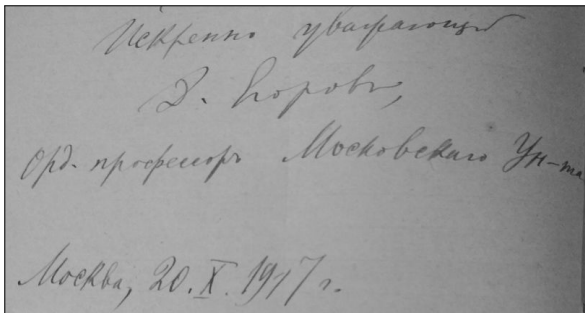 Искренно уважающий
Д. Егоровъ,
Орд. профессоръ Московскаго Ун-та
Москва, 20. X. 1917 г.